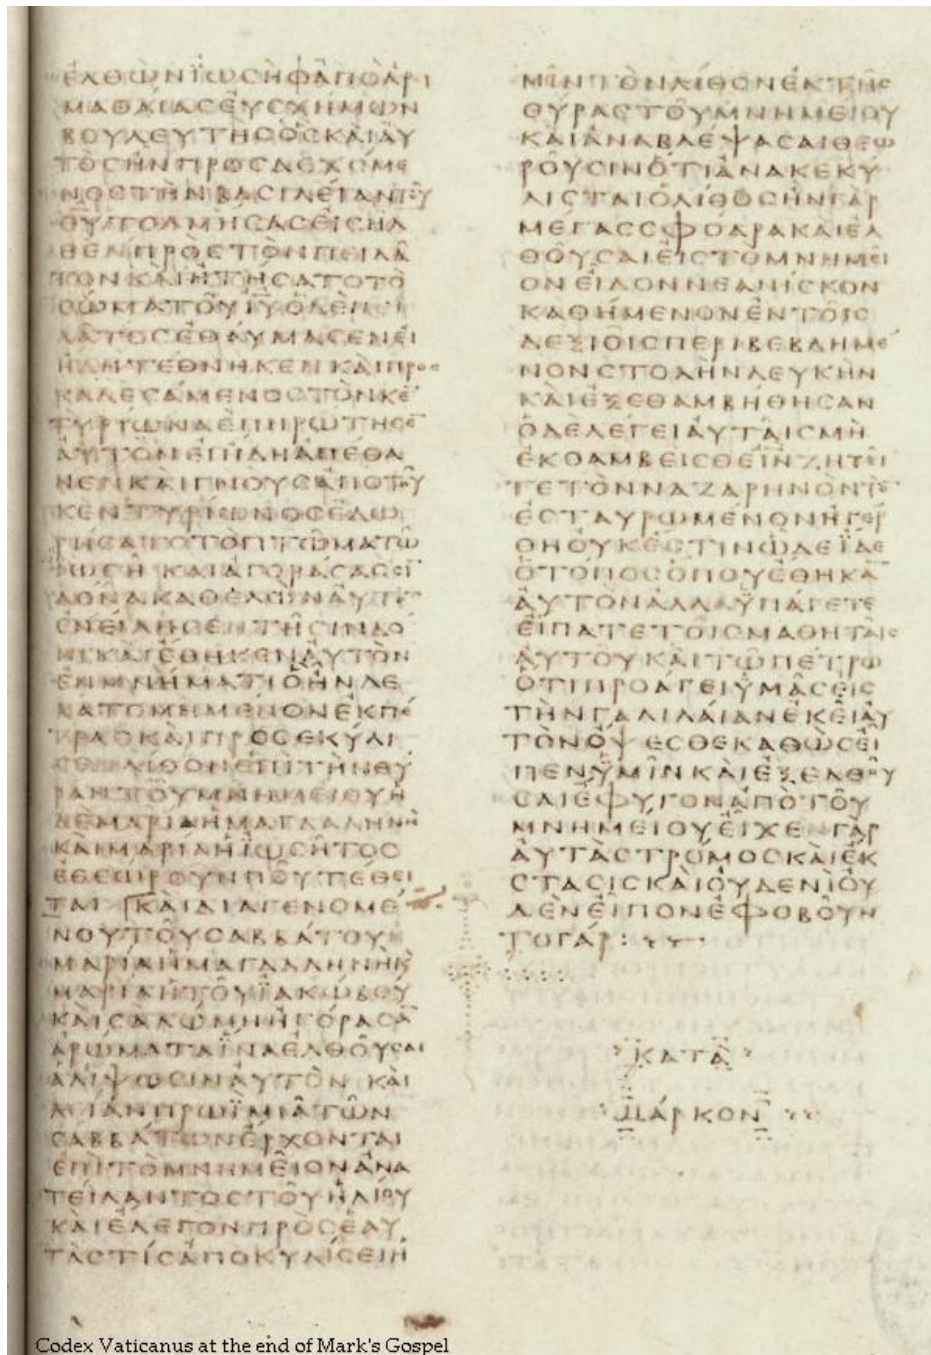 ΕΛΘΩΝΪΩϹΗΦΑΠΟΑΡΙ
ΜΑΘΑΙΑϹΕΥϹΧΗΜΩΝ
ΒΟΥΛΕΥΤΗϹΟϹΚΑΙΑΥ
ΤΟϹΗΝΠΡΟϹΔΕΧΟΜΕ
ΝΟϹΤΗΝΒΑϹΙΛΕΙΑΝΤΟΥ
Θ̅Υ̅ΤΟΛΜΗϹΑϹΕΙϹΗΛ
ΘΕΝΠΡΟϹΤΟΝΠΕΙΛΑ
ΤΟΝΚΑΙΗΤΗϹΑΤΟΤΟ
ϹΩΜΑΤΟΥΙ̅Υ̅ΟΔΕΠΕΙ
ΛΑΤΟϹΕΘΑΥΜΑϹΕΝΕΙ
ΗΔΗΤΕΘΝΗΚΕΝΚΑΙΠΡΟϹ
ΚΑΛΕϹΑΜΕΝΟϹΤΟΝΚΕ̅
ΤΥΡΙΩΝΑΕΠΗΡΩΤΗϹΕ̅
ΑΥΤΟΝΕΙΗΔΗΑΠΕΘΑ
ΝΕΝΚΑΙΓΝΟΥϹΑΠΟΤΟΥ
ΚΕΝΤΥΡΙΩΝΟϹΕΔΩ
ΡΗϹΑΤΟΤΟΠΤΩΜΑΤΩ
ΪΩϹΗΚΑΙΑΓΟΡΑϹΑϹϹΙ̅
ΔΟΝΑΚΑΘΕΛΩΝΑΥΤΟ̅
ΕΝΕΙΛΗϹΕΝΤΗϹΙΝΔΟ
ΝΙΚΑΙΕΘΗΚΕΝΑΥΤΟΝ
ΕΝΜΝΗΜΑΤΙΟΗΝΛΕ
ΛΑΤΟΜΗΜΕΝΟΝΕΚΠΕ
ΤΡΑϹΚΑΙΠΡΟϹΕΚΥΛΙ
ϹΕΝΛΙΘΟΝΕΠΙΤΗΝΘΥ
ΡΑΝΤΟΥΜΝΗΜΕΙΟΥΗ
ΔΕΜΑΡΙΑΗΜΑΓΔΑΛΗΝΗ
ΚΑΙΜΑΡΙΑΗΪΩϹΗΤΟϹ
ΕΘΕΩΡΟΥΝΠΟΥΤΕΘΕΙ
ΤΑΙΚΑΙΔΙΑΓΕΝΟΜΕ
ΝΟΥΤΟΥϹΑΒΒΑΤΟΥ
ΜΑΡΙΑΗΜΑΓΔΑΛΗΝΗΚ
ΜΑΡΙΑΗΤΟΥΪΑΚΩΒΟΥ
ΚΑΙϹΑΛΩΜΗΗΓΟΡΑϹΑ̅
ΑΡΩΜΑΤΑΪΝΑΕΛΘΟΥϹΑΙ
ΑΛΙΨΩϹΙΝΑΥΤΟΝΚΑΙ
ΜΙΑΝΠΡΩΪΜΙΑΤΩΝ
ϹΑΒΒΑΤΩΝΕΡΧΟΝΤΑΙ
ΕΠΙΤΟΜΝΗΜΕΙΟΝΑΝΑ
ΤΕΙΛΑΝΤΟϹΤΟΥΗΛΙΟΥ
ΚΑΙΕΛΕΓΟΝΠΡΟϹΕΑΥ
ΤΑϹΤΙϹΑΠΟΚΥΛΙϹΕΙΗ
ΜΙΝΤΟΝΛΙΘΟΝΕΚΤΗϹ
ΘΥΡΑϹΤΟΥΜΝΗΜΕΙΟΥ
ΚΑΙΑΝΑΒΛΕΨΑϹΑΙΘΕΩ
ΡΟΥϹΙΝΟΤΙΑΝΑΚΕΚΥ
ΛΙϹΤΑΙΟΛΙΘΟϹΗΝΓΑΡ
ΜΕΓΑϹϹΦΟΔΡΑΚΑΙΕΛ
ΘΟΥϹΑΙΕΙϹΤΟΜΝΗΜΕΙ
ΟΝΕΙΔΟΝΝΕΑΝΙϹΚΟΝ
ΚΑΘΗΜΕΝΟΝΕΝΤΟΙϹ
ΔΕΞΙΟΙϹΠΕΡΙΒΕΒΛΗΜΕ
ΝΟΝϹΤΟΛΗΝΛΕΥΚΗΝ
ΚΑΙΕΞΕΘΑΜΒΗΘΗϹΑΝ
ΟΔΕΛΕΓΕΙΑΥΤΑΙϹΜΗ
ΕΚΘΑΜΒΕΙϹΘΕΙ̅Ν̅ΖΗΤΕΙ
ΤΕΤΟΝΝΑΖΑΡΗΝΟΝΤΟ̅
ΕϹΤΑΥΡΩΜΕΝΟΝΗΓΕΡ
ΘΗΟΥΚΕϹΤΙΝΩΔΕΪΔΕ
ΟΤΟΠΟϹΟΠΟΥΕΘΗΚΑ̅
ΑΥΤΟΝΑΛΛΑΫΠΑΓΕΤΕ
ΕΙΠΑΤΕΤΟΙϹΜΑΘΗΤΑΙϹ
ΑΥΤΟΥΚΑΙΤΩΠΕΤΡΩ
ΟΤΙΠΡΟΑΓΕΙΥΜΑϹΕΙϹ
ΤΗΝΓΑΛΙΛΑΙΑΝΕΚΕΙΑΥ
ΤΟΝΟΨΕϹΘΕΚΑΘΩϹΕΙ
ΠΕΝΫΜΙΝΚΑΙΕΞΕΛΘΟΥ
ϹΑΙΕΦΥΓΟΝΑΠΟΤΟΥ
ΜΝΗΜΕΙΟΥΕΙΧΕΝΓΑΡ
ΑΥΤΑϹΤΡΟΜΟϹΚΑΙΕΚ
ϹΤΑϹΙϹΚΑΙΟΥΔΕΝΙΟΥ
ΔΕΝΕΙΠΟΝΕΦΟΒΟΥΝ
ΤΟΓΑΡ:
ΚΑΤΑ
ΜΑΡΚΟΝ
Codex Vaticanus at the end of Mark's Gospel